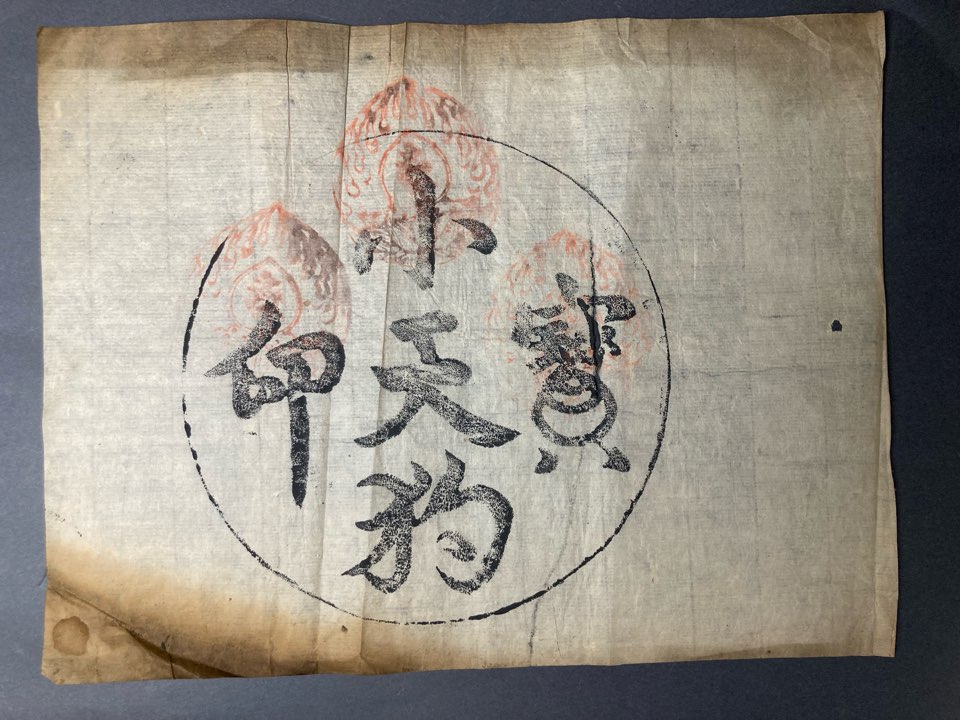 小天狗
寶
印